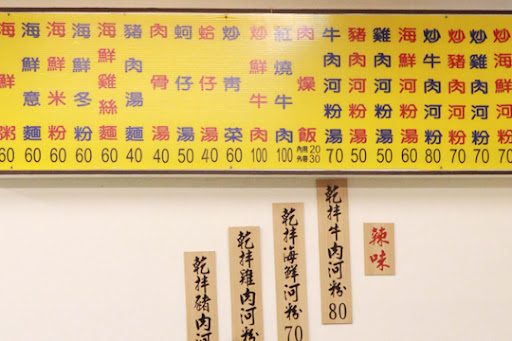 海鮮粥 60
海鮮意麵 60
海鮮米粉 60
海鮮冬粉 60
海鮮雞絲麵 60
豬肉湯麵 40
肉骨湯 40
蚵仔湯 50
蛤仔湯 40
炒青菜 60
炒鮮牛肉 100
紅燒牛肉 100
肉燥飯 內用20 外帶30
牛肉河粉湯 70
豬肉河粉湯 50
雞肉河粉湯 50
海鮮河粉湯 60
炒牛肉河粉 80
炒豬肉河粉 70
炒雞肉河粉 70
炒海鮮河粉 70
乾拌豬肉河
乾拌雞肉河粉
乾拌海鮮河粉 70
乾拌牛肉河粉 80
辣味